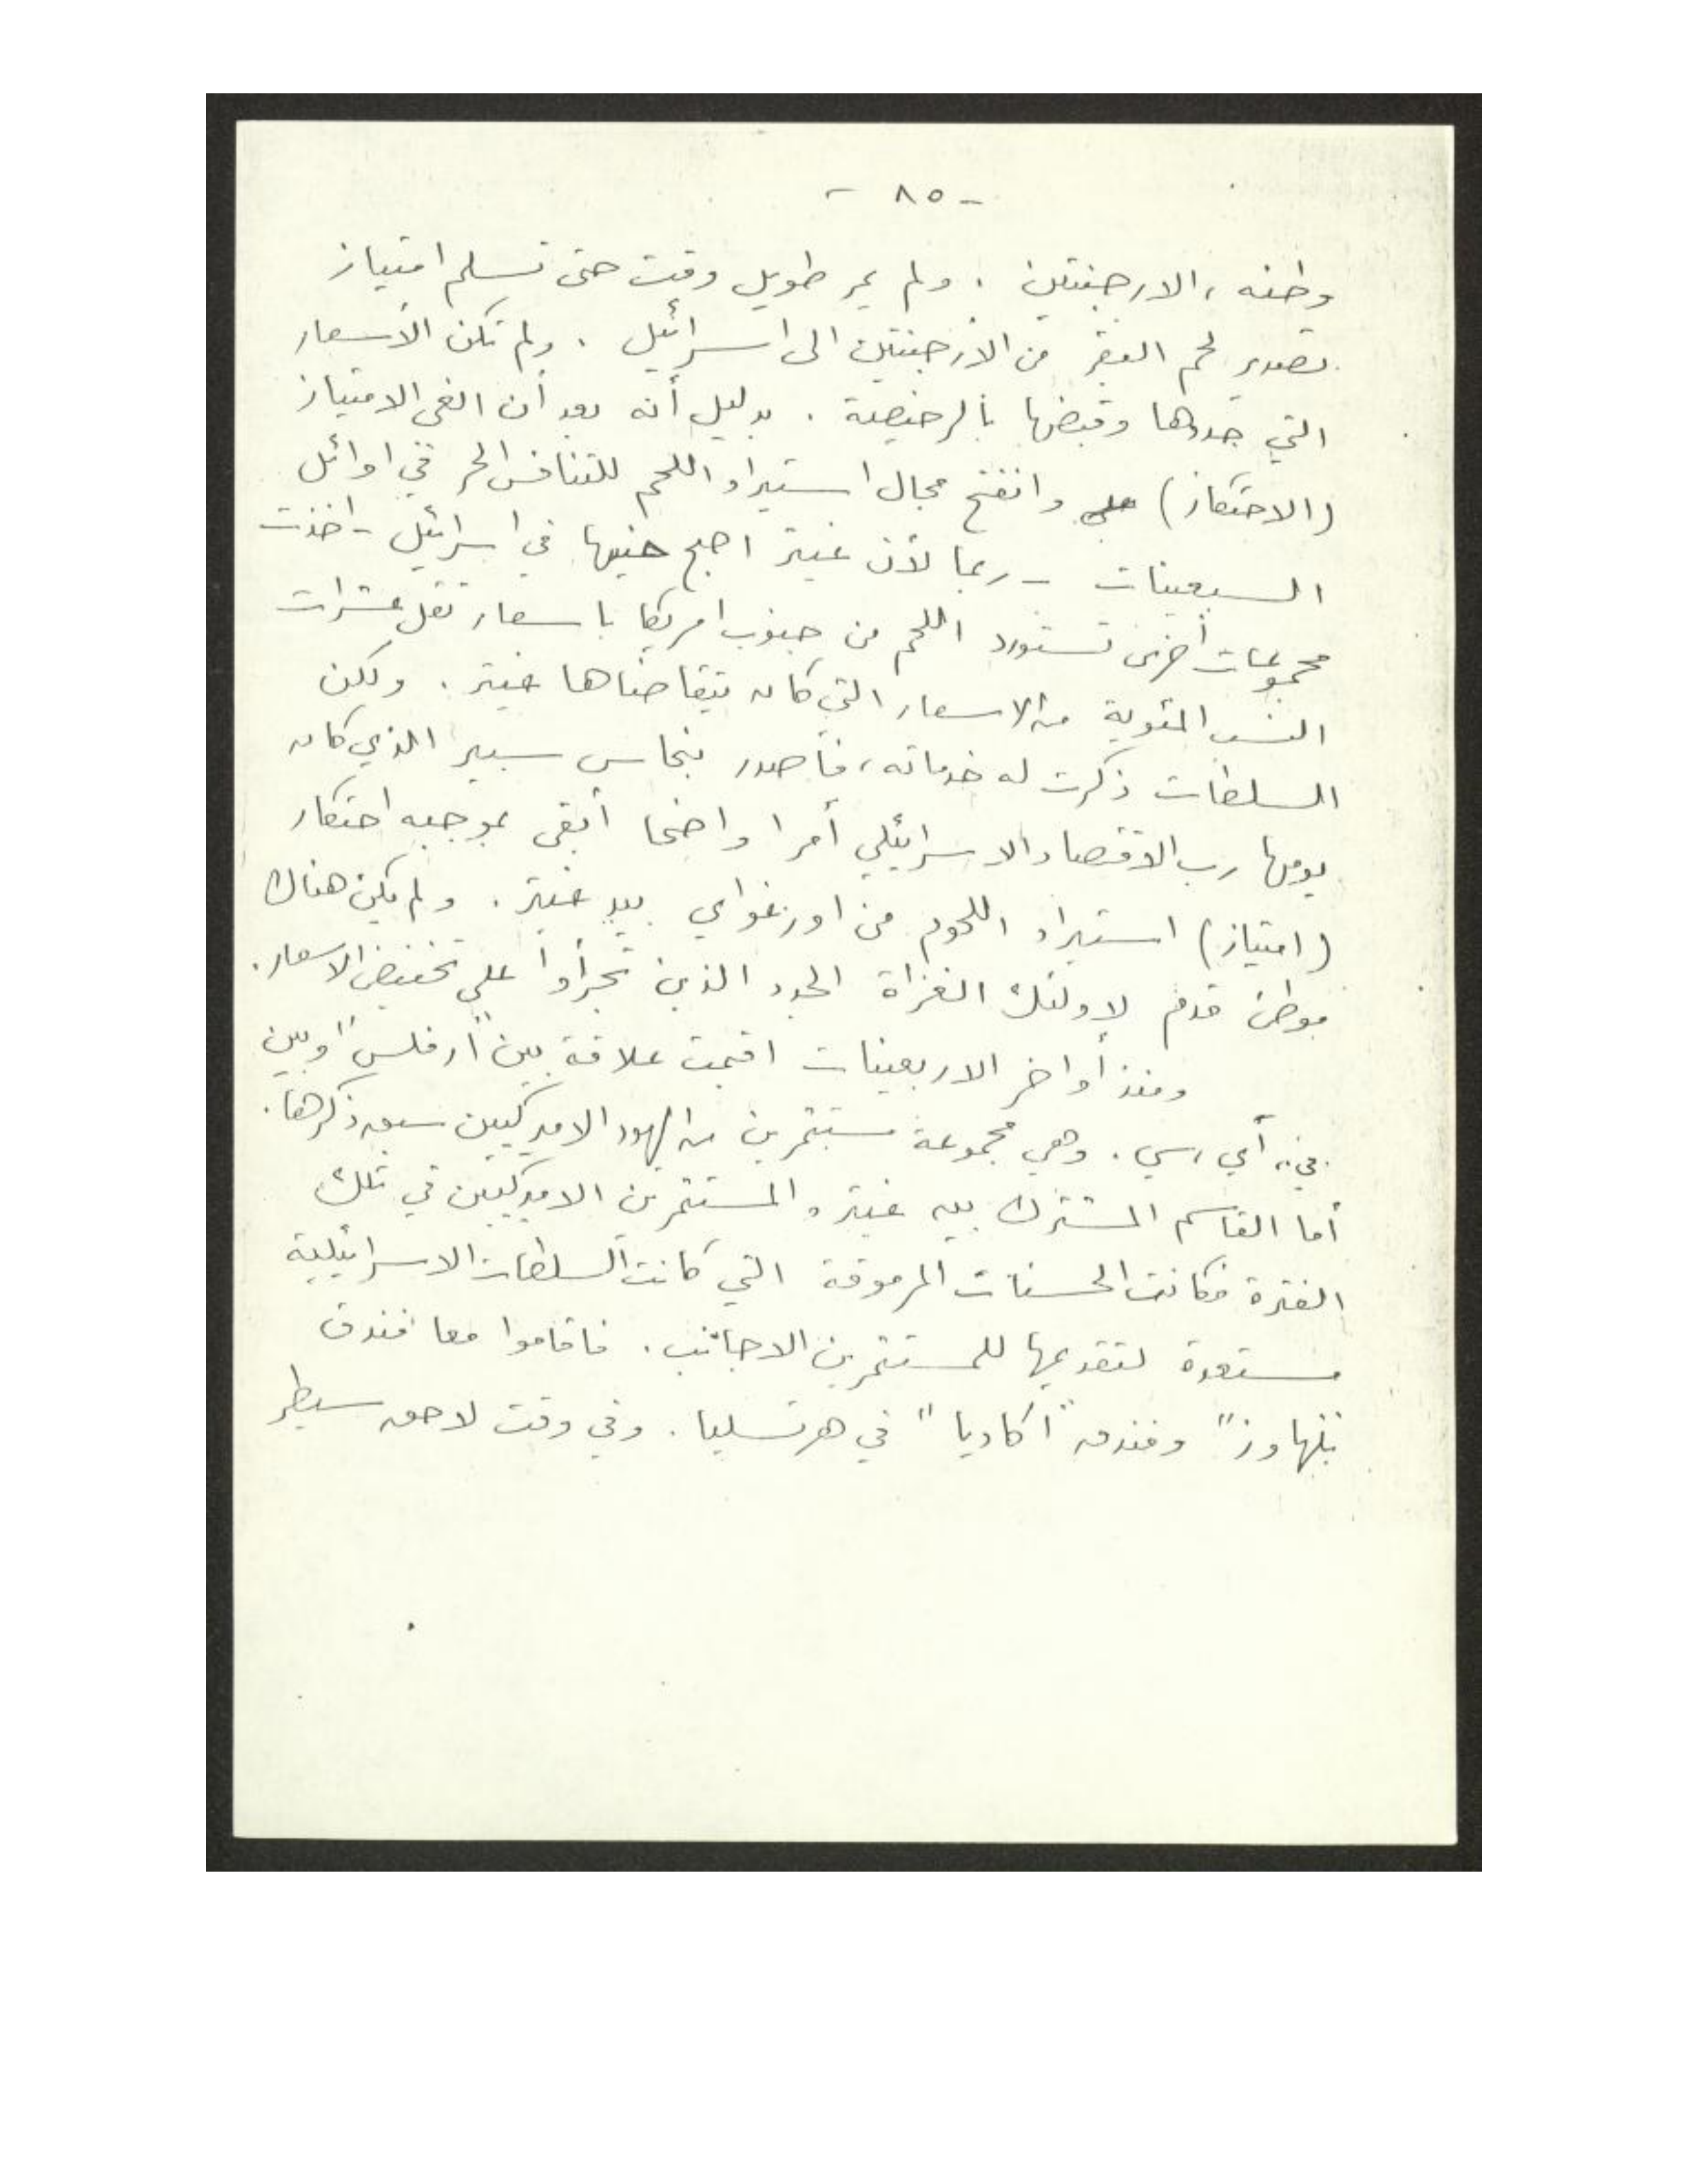 - ٨٥ -
وطنه ، الارجنتين . ولم يمر طويل وقت حتى تسلم امتياز
تصدير لحم البقر من الأرجنتين الى اسرائيل . ولم تكن الأسعار
التي حددها وقبضها بالرخيصة . بدليل أنه بعد أن الغي الامتياز
(الاحتكار) وانفتح مجال استيراد اللحم للتنافس الحر في اوائل
السبعينات - ربما لأن غيتر اصبح في اسرائيل - اخذت
مجموعات أخرى تستورد اللحم من جنوب امريكا باسعار تقل عشرات
النسب المئوية من الاسعار التي كان يتقاضاها غيتر . ولكن
السلطات ذكرت له خدماته ، فأصدر بنحاس سبير الذي كان
يومها رب الاقتصاد الاسرائيلي أمرا واضحا أبقى بموجبه احتكار
(امتياز) استيراد اللحوم من اورغواي بيد غيتر . ولم يكن هناك
موطئ قدم لاولئك الغزاة الجدد الذين تجرأوا على تخفيض الاسعار .
ومنذ أواخر الاربعينات اقيمت علاقة بين "ارفلس" وبين
بي ، أي ، سي . وهي مجموعة مستثمرين من اليهود الاميركيين سبق ذكرها .
أما القاسم المشترك بين غيتر والمستثمرين الاميركيين في تلك
الفترة فكانت الحسنات المرموقة التي كانت السلطات الاسرائيلية
مستعدة لتقديمها للمستثمرين الاجانب . فاقاموا معا فندق
وفندق "اكاديا" في هرتسليا . وفي وقت لاحق سيطر